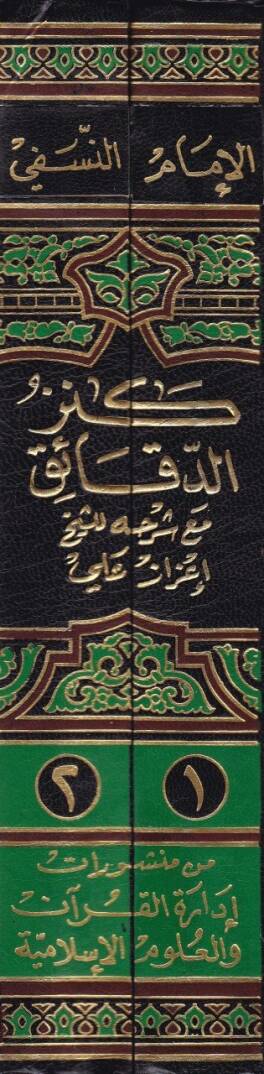 الإمام النسفي
كنز
الدقائق
مع شرحه للشيخ
إعزاز علي
١ ٢
من منشورات
إدارة القرآن
والعلوم الإسلامية